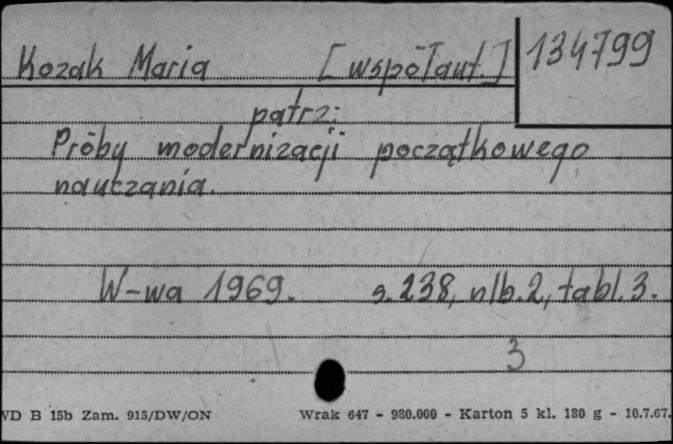 Kozak Maria [współaut.] 134799
patrz:
Próby modernizacji początkowego
nauczania.
W-wa 1969. s. 238, nlb. 2, tabl. 3.
3
VD B 15b Zam. 915/DW/ON Wrak 647 - 980.000 - Karton 5 kl. 180 g - 10.7.67.